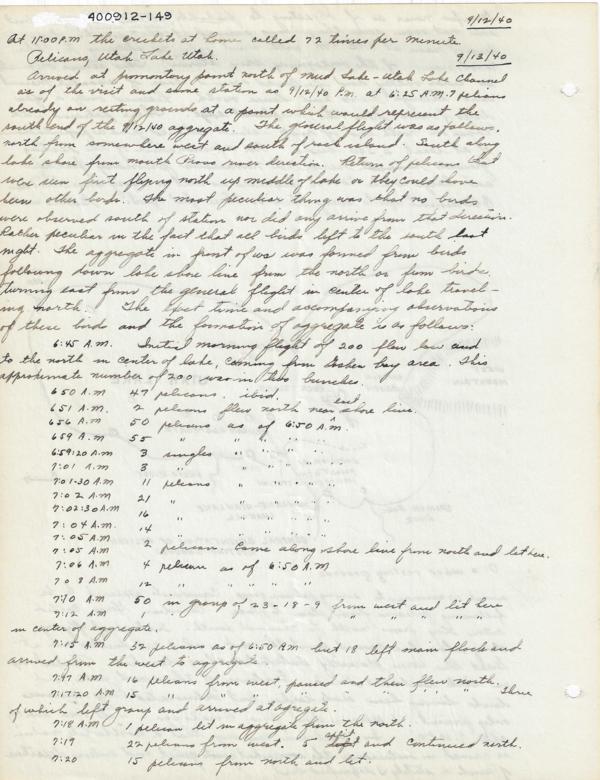 400912-149
9/12/40
At 11:00 P.M. the crickets at home called 72 times per minute.
9/13/40
Pelicans, Utah Lake Utah.
Arrived at promontory point north of Mud Lake - Utah Lake Channel
as of the visit and same station as 9/12/40 P.m. at 6:25 A.M. 7 pelicans
already on resting grounds at a point which would represent the
south end of the 9/12/40 aggregate. The general flight was as follows.
north from somewhere west and south of rock island. South along
lake shore from mouth Provo river direction. Return of pelicans that
were seen first flying north up middle of lake or they could have
been other birds. The most peculiar thing was that no birds
were observed south of station nor did any arrive from that direction.
Rather peculiar in the fact that all birds left to the south last
night. The aggregate in front of us was formed from birds
following down lake shore line from the north or from birds
turning east from the general flight in center of lake travel-
ing north. The exact time and accompanying observations
of these birds and the formation of aggregate is as follows:
6:45 A.M. Initial morning flight of 200 flew low and
to the north in center of lake, coming from Goshen bay area. This
approximate number of 200 was in two bunches.
650 A.M 47 pelicans, ibid.
651 A.M. 2 pelicans flew north near east shore line.
656 A.M 50 pelicans as of 6:50 A.m.
659 A.M 55 " " " " "
6:59:20 A.M 3 singles " " " "
7:01 A.M 3 " " " " "
7:01-30 A.M 11 pelicans " " " "
7:02 A.M 21 " " " " "
7:02:30 A.M 16 " " " " "
7:04 A.M. 14 " " " " "
7:05 A.M
7:05 A.M 2 pelican came along shore line from north and lit here.
7:06 A.M 4 pelican as of 6:50 A.M
708 A.M 12 " " " " "
7:10 A.M 50 in group of 23-18-9 from west and lit here
7:12 A.M 1 " " " " "
in center of aggregate.
7:15 A.M 32 pelicans as of 6:50 A.M but 18 left main flock and
arrived from the west to aggregate.
7:17 A.M 16 pelicans from west, paused and then flew north.
7:17:20 A.M 15 " " " " " " " " Three
of which left group and arrived at agregate.
7:18 A.M 1 pelican lit in aggregate from the north.
7:19 22 pelicans from west. 5 and continued north.
7:20 15 pelicans from north and lit.